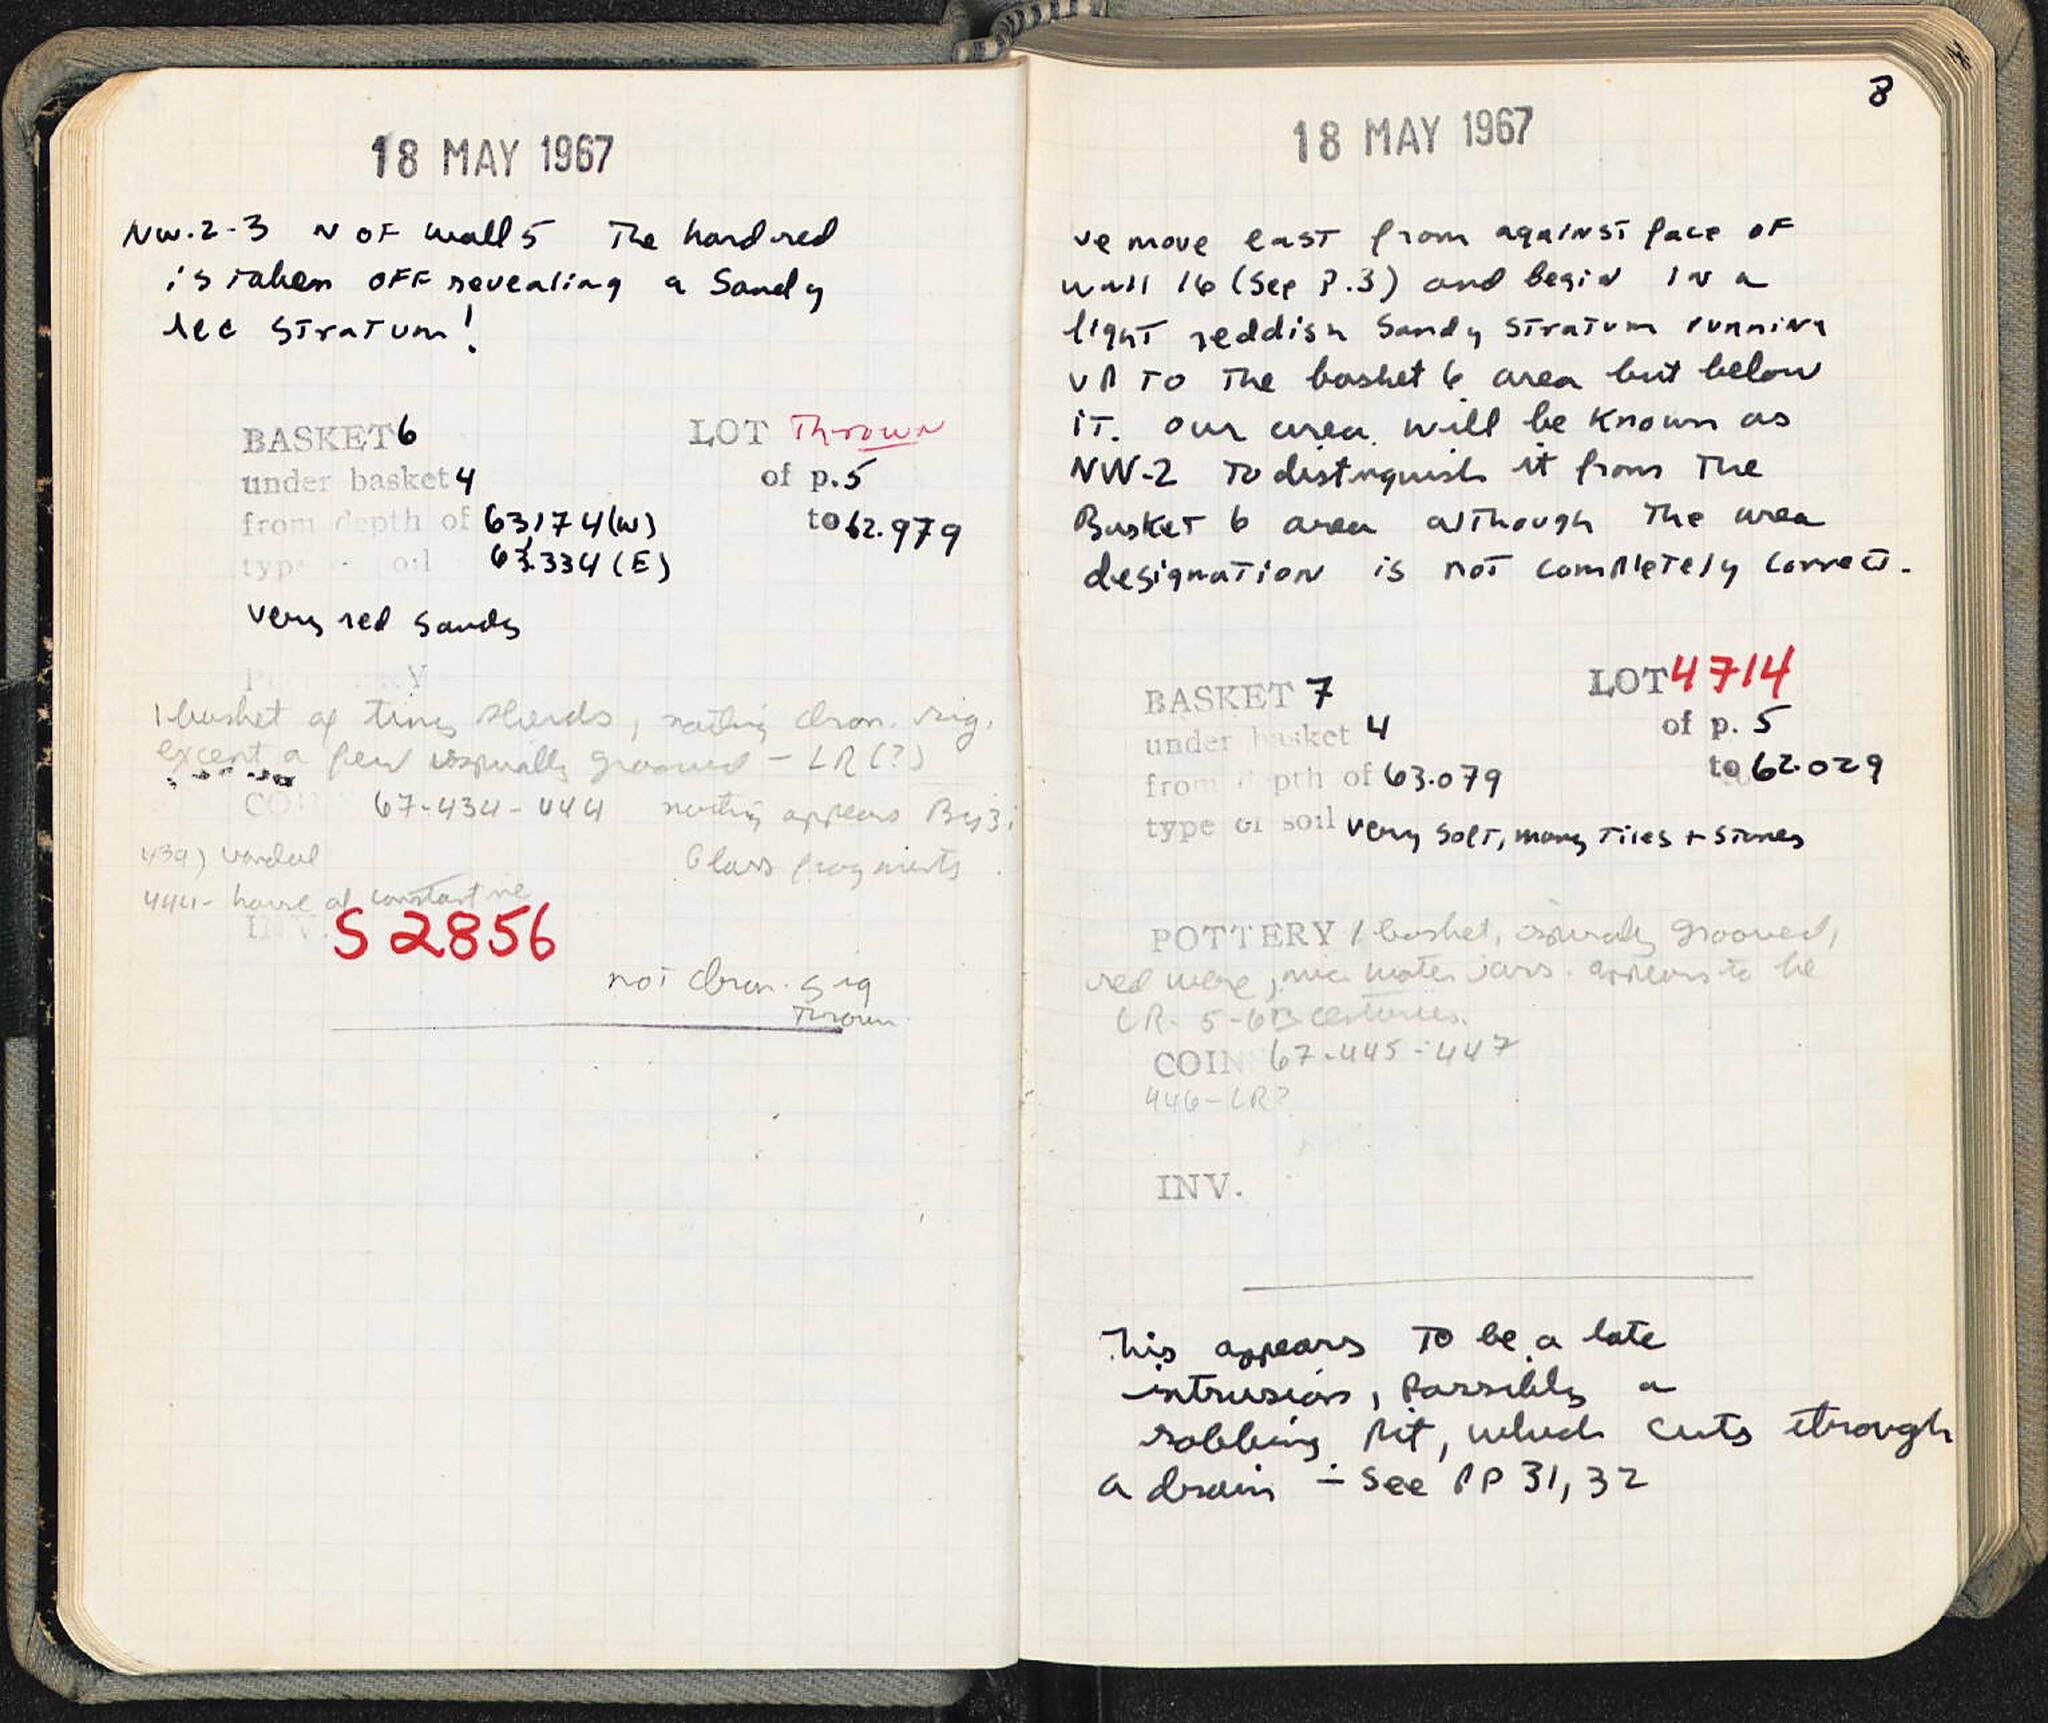 18 MAY 1967
NW.2-3 N OF wall 5 The hard red
is taken OFF revealing a Sandy
red STratum!
BASKET 6 LOT Thrown
under basket 4 of p. 5
from depth of 63.174 (W) to 62.979
type oil 63.334 (E)
very red sandy
1 basket of tiny sherds, nothing chron. sig.
except a few spirally grooved - LR (?)
CO 67-434-444 nothing appears Byz;
439) vandal Glass fragments
444- house of constantine
INV. S 2856
not chron. sig
Thrown
8
18 MAY 1967
we move east from against face OF
wall 16 (See P.3) and begin in a
light reddish Sandy STratum running
up TO The basket 6 area but below
iT. Our area will be known as
NW-2 To distinguish it from The
Basket 6 area although The area
designation is not completely correct.
BASKET 7 LOT 4714
under basket 4 of p. 5
from depth of 63.079 to 62.029
type of soil very soft, many Tiles + stones
POTTERY 1 basket, spirally grooved,
red ware, mica water jars. appears to be
LR- 5-6th centuries.
COIN 67-445-447
446-LR?
INV.
This appears To be a late
intrusion, possibly a
robbing pit, which cuts through
a drain - See PP 31, 32